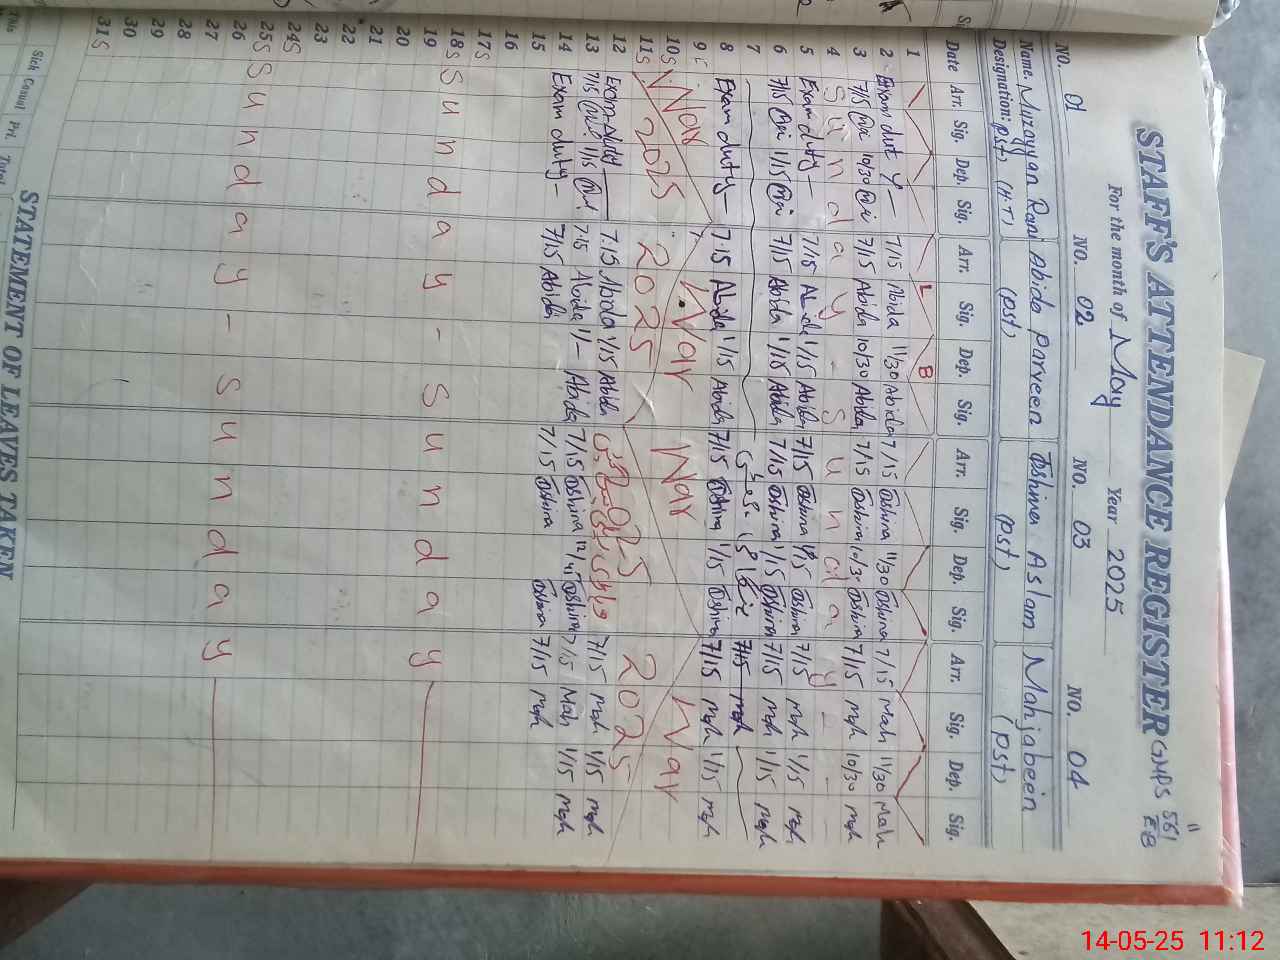 STAFF'S ATTENDANCE REGISTER GMPS 561 EB
For the month of May Year 2025
NO. 01 NO. 02 NO. 03 NO. 04
Name. Muzayyan Rani Abida parveen Toshina Aslam Mahjabeen
Designation: pst) (H.T) (pst) (pst) (pst)
Date Arr. Sig. Dep. Sig. Arr. Sig. Dep. Sig. Arr. Sig. Dep. Sig. Arr. Sig. Dep. Sig.
1 L B
2 Exam duty — 7/15 Abida 11/30 Abida 7/15 Toshina 11/30 Toshina 7/15 Mah 11/30 Mah
3 7/15 10/30 7/15 Abida 10/30 Abida 7/15 Toshina 10/30 Toshina 7/15 mah 10/30 mah
4 Sunday - Sunday —
5 Exam duty — 7/15 Abida 1/15 Abida 7/15 Toshina 1/15 Toshina 7/15 mah 1/15 mah
6 7/15 1/15 7/15 Abida 1/15 Abida 7/15 Toshina 1/15 Toshina 7/15 mah 1/15 mah
7 7/15 mah
8 Exam duty — 7:15 Abida 1/15 Abida 7/15 Toshina 1/15 Toshina 7/15 mah 1/15 mah
9
10 S War War War War
11 S 2025 2025 2025 2025
12 Exam duty 7:15 Abida 1/15 Abida
13 7/15 1/15 7:15 Abida 1/- Abida 7/15 Toshina Toshina 7/15 mah 1/15 mah
14 Exam duty — 7/15 Abida 7/15 Toshina Toshina 7/15 Mah 1/15 mah
15 7/15 mah
16
17 S
18 S Sunday - Sunday
19
20
21
22
23
24 S
25 S Sunday - Sunday
26
27
28
29
30
31 S
STATEMENT OF LEAVES TAKEN
Sick Casual Pri. Total
This
14-05-25 11:12